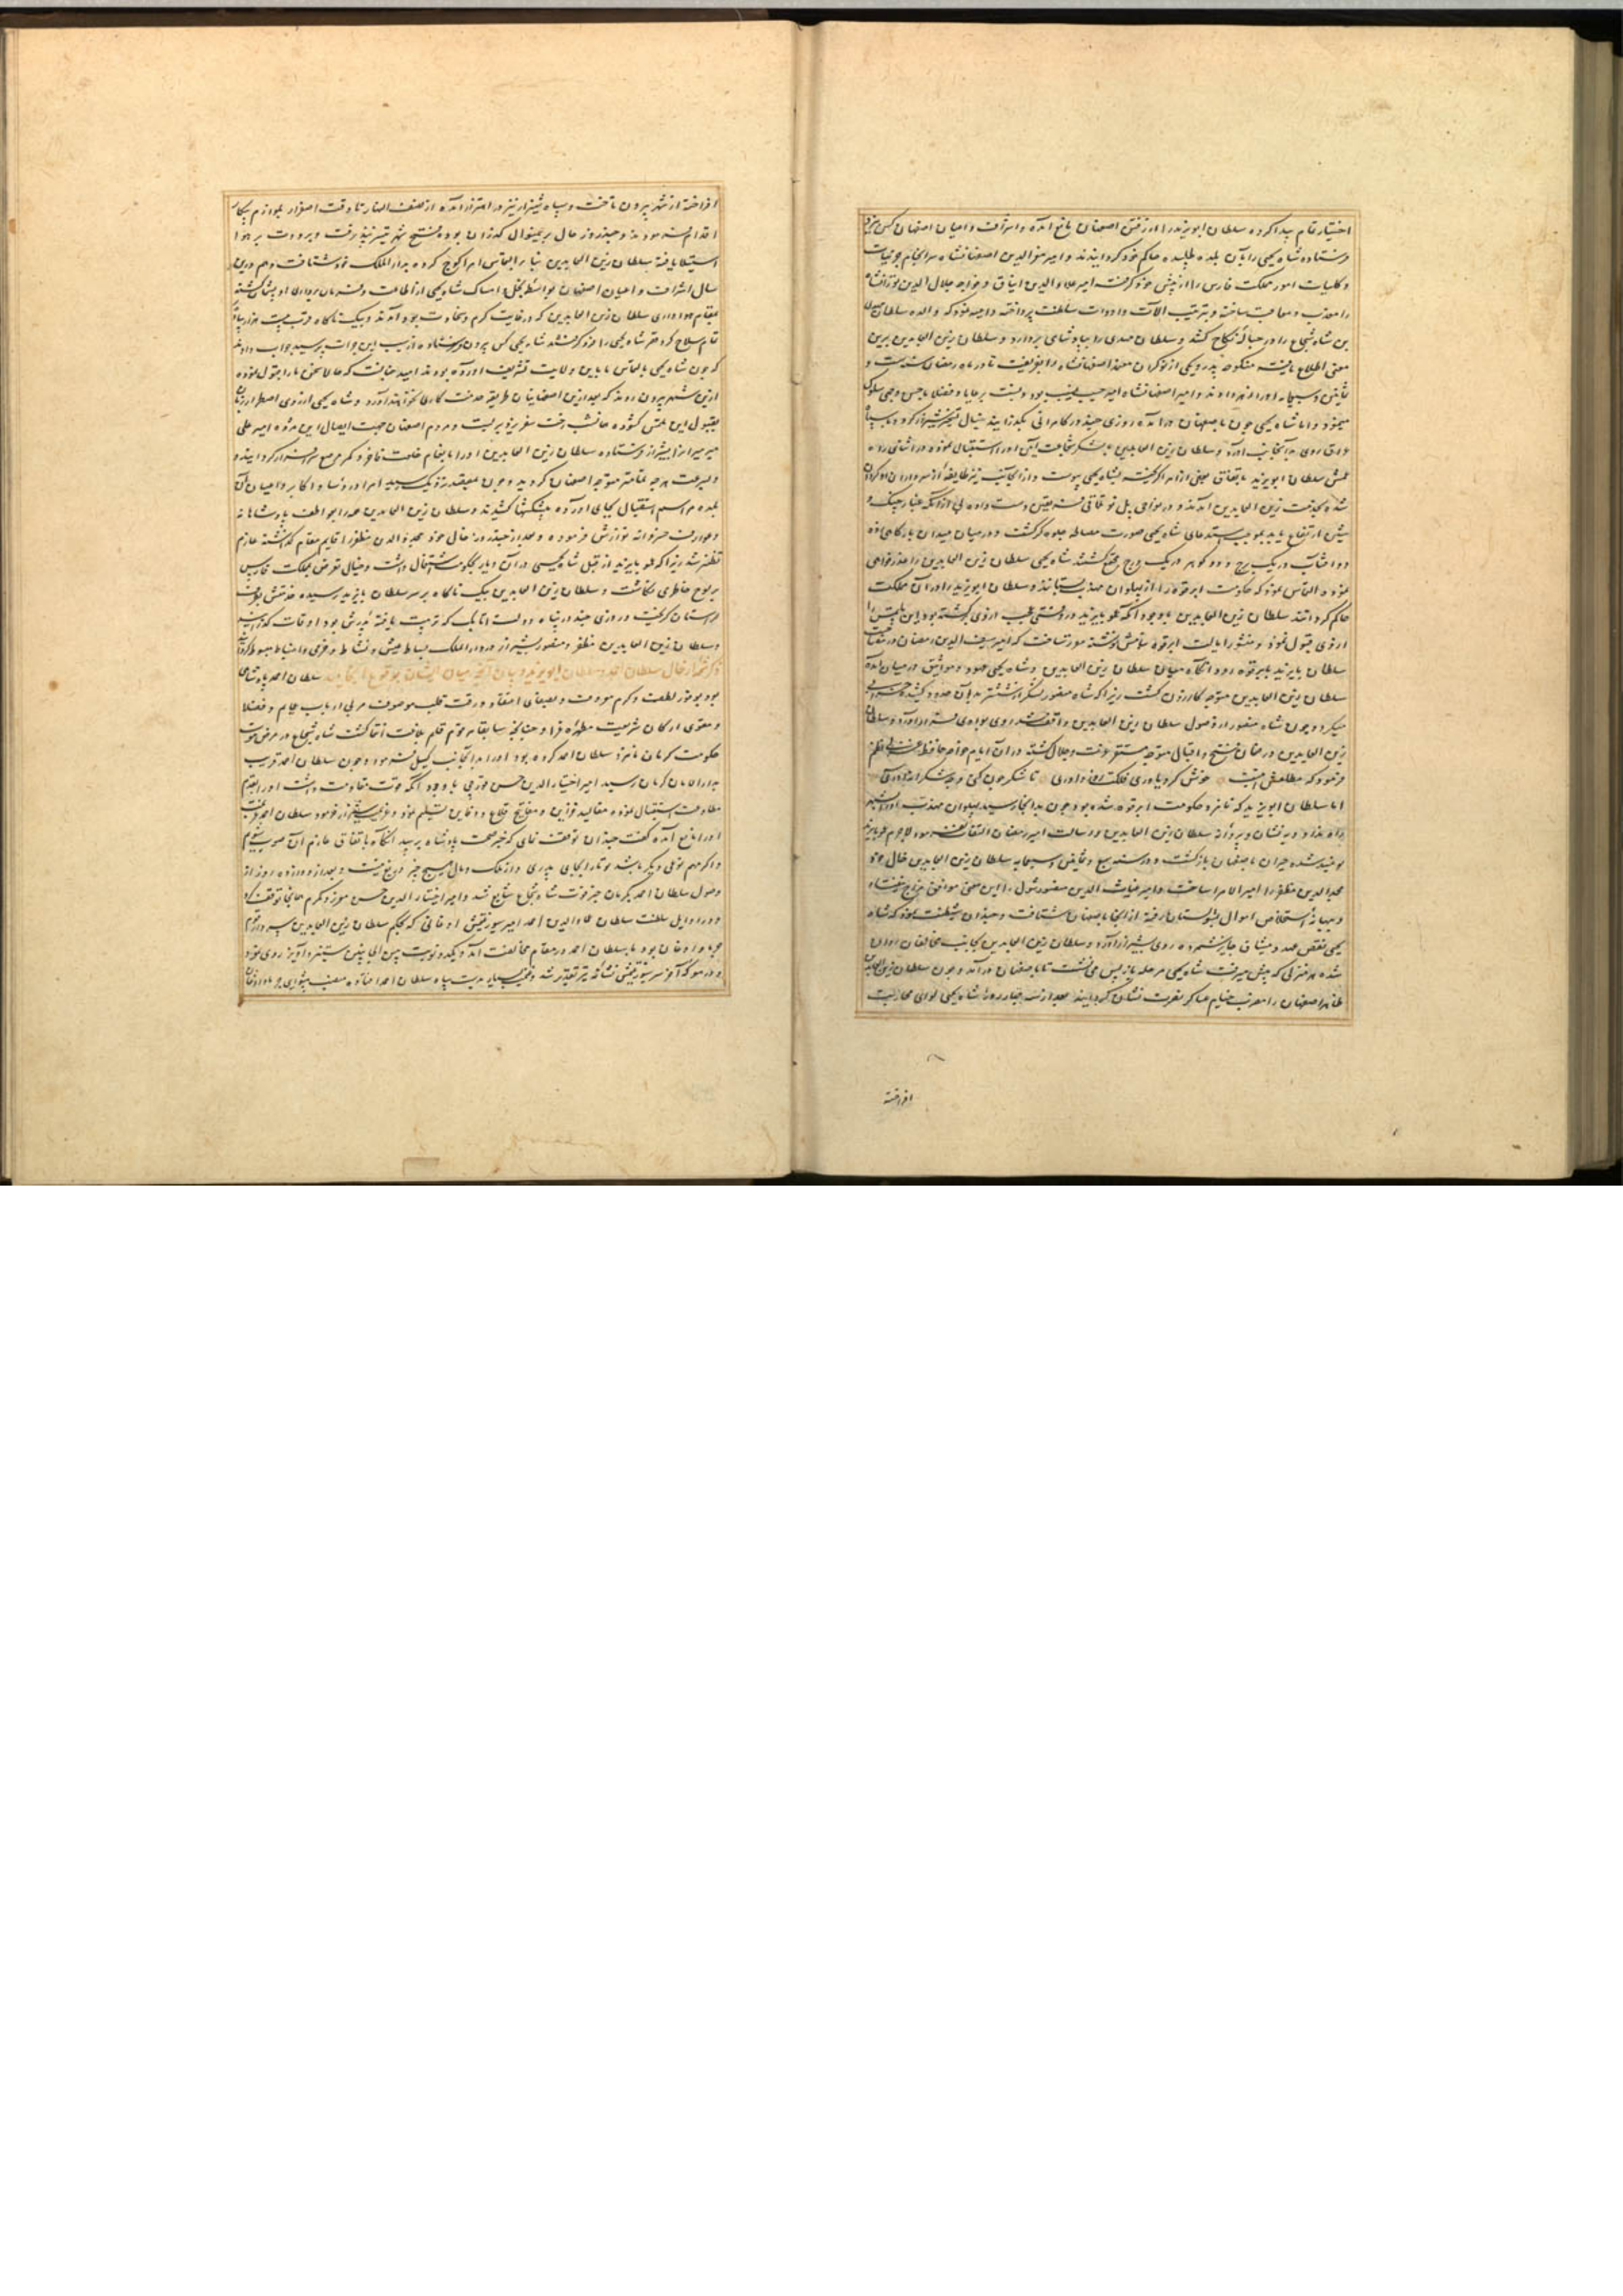 اختیار تمام پیدا کرده سلطان ابویزید را از رفتن اصفهان مانع آمده و اشراف و اعیان اصفهان کس بیزد
فرستاده شاه یحیی را بآن بلده طلبیده حاکم خود گردانیدند و امیر معز الدین اصفهانشاه سرانجام جزئیات
و کلیات امور مملکت فارس را از پیش خود گرفته امیر علاء الدین ایناق و خواجه جلال الدین تورانشاه
را معذب و معاقب ساخته و بترتیب آلات و ادوات سلطنت پرداخته داعیه نمود که والده سلطان
بن شاه شجاع را در حباله نکاح کشد و سلطان مهدی را بپادشاهی بردارد و سلطان زین العابدین برین
معنی اطلاع یافته منکوحه پدر و یکی از نوکران معز اصفهانشاه را بفریفت تا در ماه رمضان سنه ست و
ثمانین و سبعمایه او را زهر دادند و امیر اصفهانشاه امیر حسیب نسیب بود و نسبت برعایا و فضلا باحسن وجهی سلوک
مینمود و اما شاه یحیی چون باصفهان درآمده روزی چند در کامرانی بگذرانید بخیال تسخیر شیراز کرد و با سپاه
وافر روی بدآنجانب آورد و سلطان زین العابدین با لشکر شجاعت آیین او را استقبال نموده در اثنای راه
عمش سلطان ابویزید باتفاق بعضی از امرا گریخته بشاه یحیی پیوست و از آنجانب نیز طایفه از سرداران رو گردان
شده بخدمت زین العابدین آمدند و در نواحی پل نو تلاقی فریقین دست داده بی از آنکه غبار جنگ و
شین ارتفاع یابد بموجب استدعای شاه یحیی صورت مصالحه جلوه گر گشت و در میان میدان بارگاهی زده
دو آفتاب در یک برج و دو گوهر در یک درج مجتمع گشتند شاه یحیی سلطان زین العابدین را عذرخواهی
نموده التماس نمود که حکومت ابرقوه را از پهلوان مهذب بستانند و سلطان ابویزید را در آن مملکت
حاکم گردانند سلطان زین العابدین باوجود آنکه عمو بایزید در وقتی عجب از وی برگشته بود این ملتمس را
از وی قبول نمود و منشور ایالت ابرقوه بنامش نوشته مقرر ساخت که امیر سیف الدین رمضان در مصاحبت
سلطان بایزید بابرقوه رود آنگاه میان سلطان زین العابدین و شاه یحیی عهود و مواثیق در میان آمده
سلطان زین العابدین متوجه کازرون گشت زیرا که شاه منصور لشکر از شوشتر بدان حدود کشیده خرابی
میکرد و چون شاه منصور از وصول سلطان زین العابدین واقف شد روی بوادی فرار آورد و سلطان
زین العابدین در ضمان فتح و اقبال متوجه مستقر دولت و جلال گشته در آن ایام خواجه حافظ غزلی نظم
فرمود که مطلعش اینست خوش کرد یاوری فلکت روز داوری تا شکر چون کنی و چه شکرانه آوری
اما سلطان ابویزید که نامزد حکومت ابرقوه شده بود چون بدآنجا رسید پهلوان مهذب او را بشهر
راه نداد و به نشان و پروانه سلطان زین العابدین و رسالت امیر رمضان التفات ننمود لاجرم عمو بایزید
نومید شده حیران باصفهان بازگشت و در سنه سبع و ثمانین و سبعمایه سلطان زین العابدین خال خود
مجد الدین مظفر را امیر الامرا ساخت و امیر غیاث الدین منصور شول را این معنی موافق مزاج نیفتاد
و ببهانه استخلاص اموال بشولستان رفته از آنجا باصفهان شتافت و چندان شیطنت نمود که شاه
یحیی نقض عهد و میثاق جایز شمرده روی بشیراز آورد و سلطان زین العابدین بجانب مخالفان روان
شده بهر منزلی که پیش میرفت شاه یحیی مرحله باز پس می نشست تا باصفهان درآمد و چون سلطان زین العابدین
ظاهر اصفهان را مضرب خیام عساکر نصرت نشان گردانید بعد از سه چهار روز شاه یحیی لوای محاربت
افراخته
افراخته از شهر بیرون تاخت و سپاه شیراز نیز در اهتزاز آمده از نصف النهار تا وقت اصفرار بلوازم پیکار
اقدام نمودند و چند روز حال برینمنوال گذران بوده فتح شهر تیسر نپذیرفت و برودت بر هوا
استیلا یافته سلطان زین العابدین بنا بر التماس امرا کوچ کرده بدار الملک خود شتافت و هم درین
سال اشراف و اعیان اصفهان بواسطه بخل و امساک شاه یحیی از اطاعت و فرمان برداری او پشیمان گشته
بمقام هواداری سلطان زین العابدین که در غایت کرم و سخاوت بود آمدند و بیک ناگاه قرب بیست هزار پیاده
تمام سلاح گرد قصر شاه یحیی را فرو گرفتند شاه یحیی کس بیرون فرستاده از سبب این جرات پرسید جواب دادند
که چون شاه یحیی بالتماس ما باین ولایت تشریف آورده بودند امید چنانست که حالا سخن ما را قبول نموده
ازین شهر بیرون روند که بعد ازین اصفهانیان طریقه خدمت کاری بجا نخواهند آورد و شاه یحیی از روی اضطرار زبان
بقبول این ملتمس گشوده همانشب رخت سفر یزد بربست و مردم اصفهان جهت ایصال این مژده امیر علی
میر میران را بشیراز فرستاده سلطان زین العابدین او را بانعام خلعت فاخر و کمر مرصع سرافراز گردانید و
بسرعت هرچه تمامتر متوجه اصفهان گردید و چون بمقصد نزدیک رسید امرا و رؤسا و اکابر و اعیان آن
بلده مراسم استقبال بجای آورده پیشکشها کشیدند و سلطان زین العابدین همه را بعواطف پادشاهانه
و عوارف خسروانه نوازش فرموده و بعد از چند روز خال خود مجد الدین مظفر را قایم مقام گذاشته عازم
نطنز شد زیرا که عمو بایزید از قبل شاه یحیی در آن دیار بحکومت اشتغال داشت و خیال تعرض مملکت فارس
بر لوح خاطر می نگاشت و سلطان زین العابدین بیک ناگاه بر سر سلطان بایزید رسیده عمش بطرف
لرستان گریخت و روزی چند در پناه دولت اتابک که تربیت یافته پدرش بود اوقات گذرانید
و سلطان زین العابدین مظفر و منصور بشیراز در دار الملک بساط عیش و نشاط و خرمی و انبساط مبسوط گردانید
ذکر شمه از حال سلطان احمد و سلطان ابویزید و بیان آنچه میان ایشان بوقوع انجامید سلطان احمد پادشاهی
بود بوفور لطف و کرم معروف و بصفای اعتقاد و رقت قلب موصوف مربی ارباب عمایم و فضلا
و مقوی ارکان شریعت مطهره غرا و چنانچه سابقا مرقوم قلم بلاغت انتما گشت شاه شجاع در مرض موت
حکومت کرمان نامزد سلطان احمد کرده بود او را بدآنجانب گسیل فرمود و چون سلطان احمد قریب
بدار الامان کرمان رسید امیر اختیار الدین حسن قورچی باوجود آنکه قوت مقاومت داشت او را بقدم
مطاوعت استقبال نموده مقالید خزاین و مفاتیح قلاع و دفاین تسلیم نمود و عزیمت شیراز فرمود سلطان احمد
او را مانع آمده گفت چندان توقف نمای که خبر صحت پادشاه برسد آنگاه باتفاق عازم آن صوب شویم
و اگر مهم نوعی دیگر باشد تو ما را بجای پدری و از ملک و مال هیچ چیز دریغ نیست و بعد از دوازده روز از
وصول سلطان احمد بکرمان خبر فوت شاه شجاع شایع شد و امیر اختیار الدین حسن معزز و مکرم همانجا توقف کرد
و در اوایل سلطنت سلطان عماد الدین احمد امیر سیورغتمش اوغانی که بحکم سلطان زین العابدین سردار قوم
جرما و اوغان بود با سلطان احمد در مقام مخالفت آمد و یکدو نوبت بین الجانبین ستیز و آویز روی نمود
و در معرکه آخر سیورغتمش نشانه تیر تقدیر شد